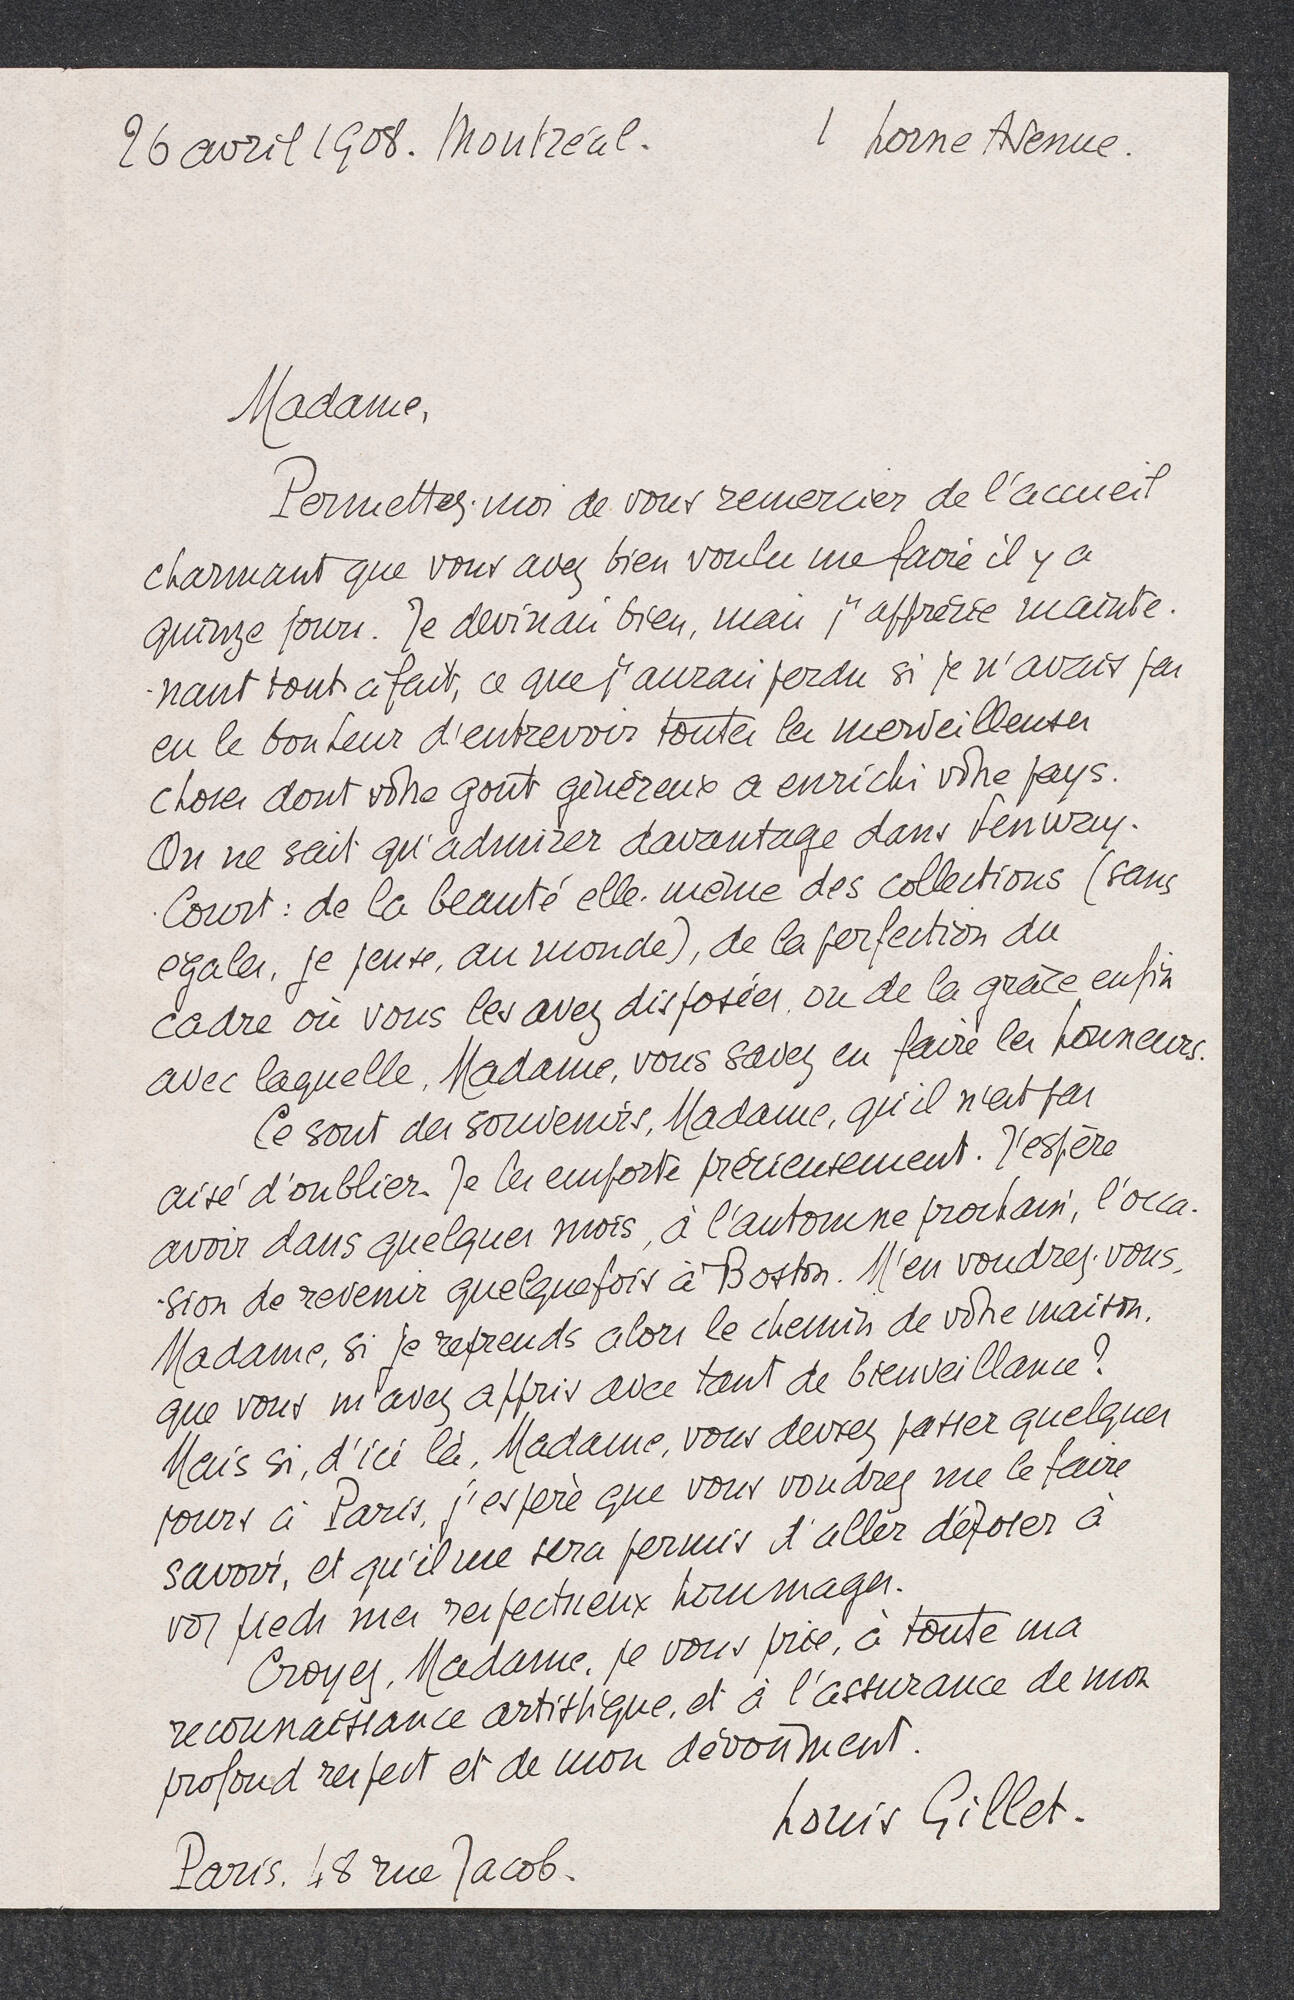 26 avril 1908. Montréal. 1 Lorne Avenue.
Madame,
Permettez-moi de vous remercier de l'accueil
charmant que vous avez bien voulu me faire il y a
quinze jours. Je devinais bien, mais j'apprécie mainte-
-nant tout à fait, ce que j'aurais perdu si je n'avais pas
eu le bonheur d'entrevoir toutes les merveilleuses
choses dont votre goût généreux a enrichi votre pays.
On ne sait qu'admirer davantage dans Fenway-
-Court : de la beauté elle-même des collections (sans
égales, je pense, au monde), de la perfection du
cadre où vous les avez disposées, ou de la grâce enfin
avec laquelle, Madame, vous savez en faire les honneurs.
Ce sont des souvenirs, Madame, qu'il n'est pas
aisé d'oublier. Je les emporte précieusement. J'espère
avoir dans quelques mois, à l'automne prochain, l'occa-
-sion de revenir quelquefois à Boston. M'en voudrez-vous,
Madame, si je reprends alors le chemin de votre maison,
que vous m'avez appris avec tant de bienveillance?
Mais si, d'ici là, Madame, vous devrez passer quelques
jours à Paris, j'espère que vous voudrez me le faire
savoir, et qu'il me sera permis d'aller déposer à
vos pieds mes respectueux hommages.
Croyez, Madame, je vous prie, à toute ma
reconnaissance artistique, et à l'assurance de mon
profond respect et de mon dévoûment.
Louis Gillet.
Paris. 48 rue Jacob.